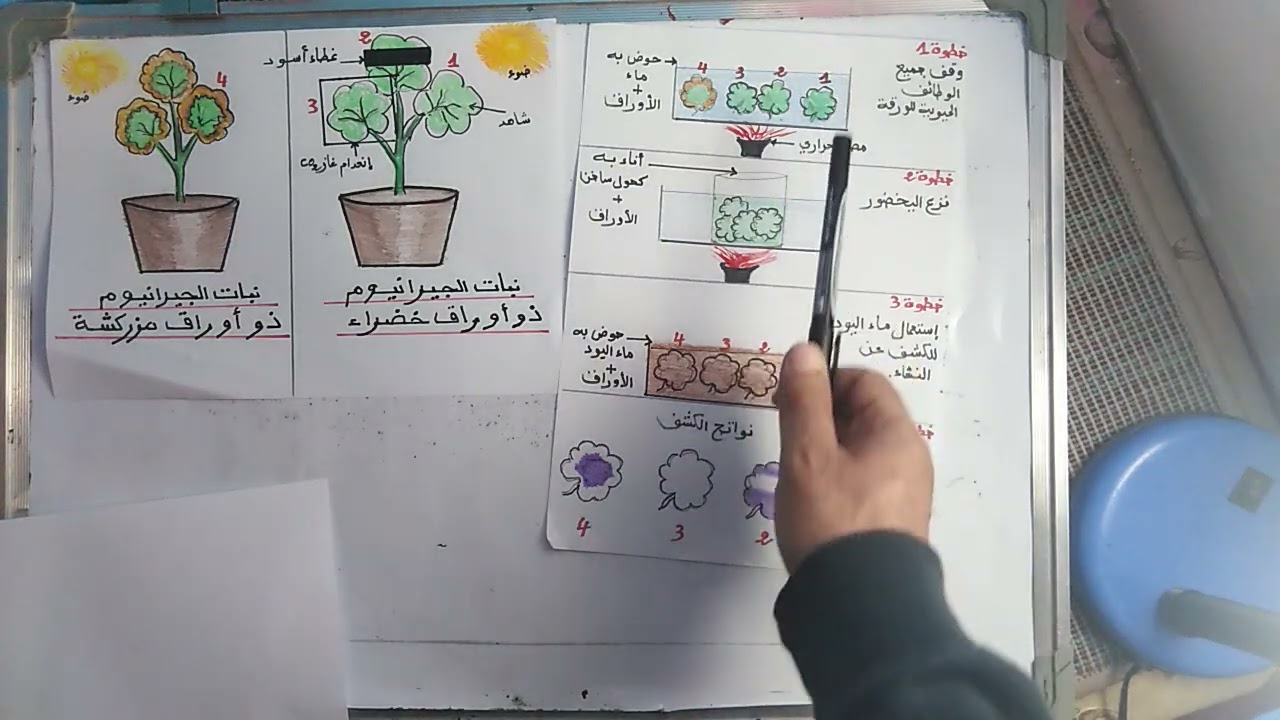 خطوة 1
وقف جميع
الوظائف
الحيوية للورقة
حوض به
ماء
+
الأوراق
4 3 2 1
حراري
خطوة 2
نزع اليخضور
أناء به
كحول ساخن
+
الأوراق
خطوة 3
إستعمال ماء اليود
للكشف عن
النشاء.
حوض به
ماء اليود
+
الأوراق
4 3 2
نواتج الكشف
4 3 2
ضوء
غطاء أسود
2
1
3
شاهد
إنعدام غاز
نبات الجيرانيوم
ذو أوراق خضراء
ضوء
4
نبات الجيرانيوم
ذو أوراق مزركشة